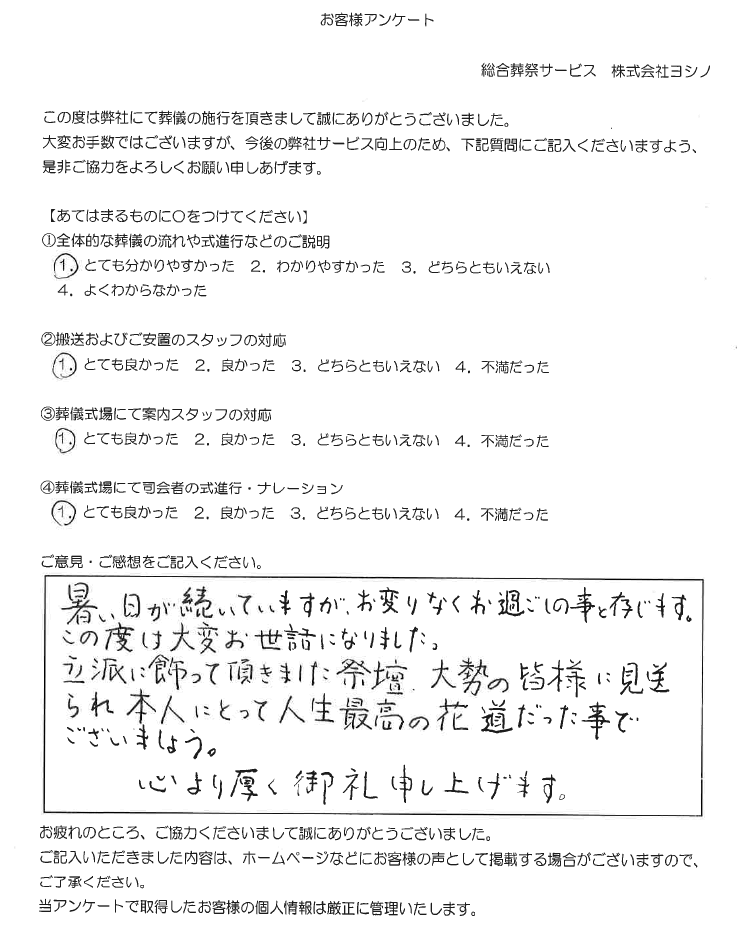 お客様アンケート
総合葬祭サービス　株式会社ヨシノ
この度は弊社にて葬儀の施行を頂きまして誠にありがとうございました。
大変お手数ではございますが、今後の弊社サービス向上のため、下記質問にご記入くださいますよう、
是非ご協力をよろしくお願い申しあげます。
【あてはまるものに○をつけてください】
①全体的な葬儀の流れや式進行などのご説明
1．とても分かりやすかった　2．わかりやすかった　3．どちらともいえない
4．よくわからなかった
②搬送およびご安置のスタッフの対応
1．とても良かった　2．良かった　3．どちらともいえない　4．不満だった
③葬儀式場にて案内スタッフの対応
1．とても良かった　2．良かった　3．どちらともいえない　4．不満だった
④葬儀式場にて司会者の式進行・ナレーション
1．とても良かった　2．良かった　3．どちらともいえない　4．不満だった
ご意見・ご感想をご記入ください。
暑い日が続いていますが、お変りなくお過ごしの事と存じます。
この度は大変お世話になりました。
立派に飾って頂きました祭壇、大勢の皆様に見送
られ本人にとって人生最高の花道だった事で
ございましょう。
心より厚く御礼申し上げます。
お疲れのところ、ご協力くださいまして誠にありがとうございました。
ご記入いただきました内容は、ホームページなどにお客様の声として掲載する場合がございますので、
ご了承ください。
当アンケートで取得したお客様の個人情報は厳正に管理いたします。